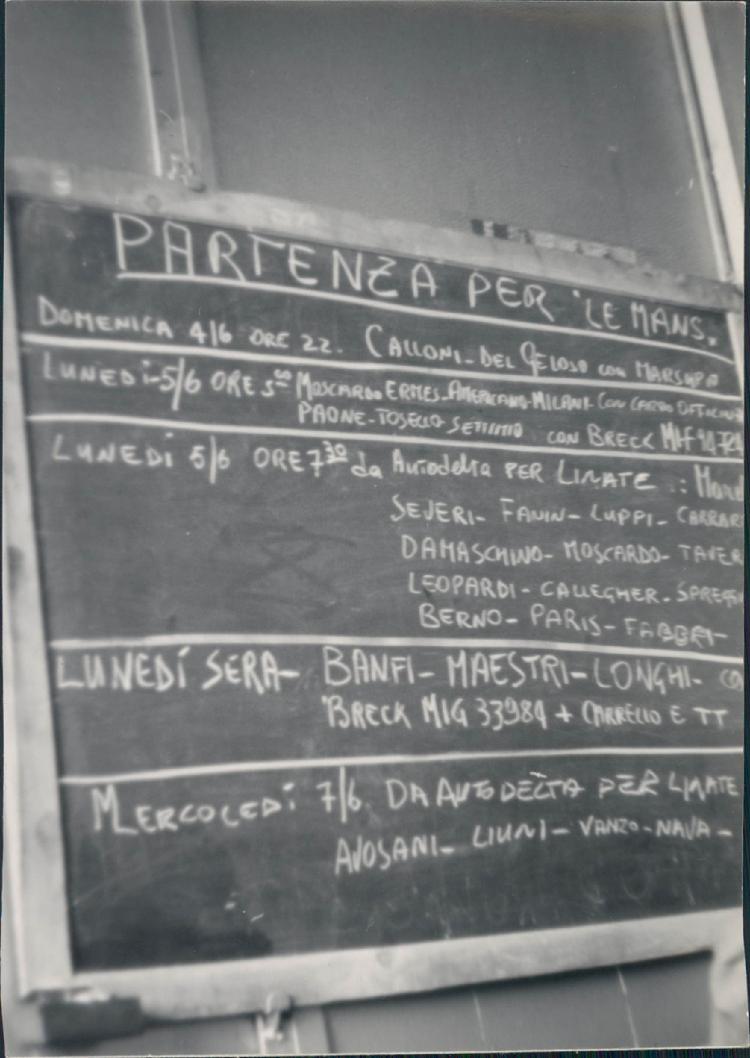 PARTENZA PER LE MANS.
DOMENICA 4/6 ORE 22. CALLONI-DEL GELOSO con MARSUPO
LUNEDI-5/6 ORE 5⁰⁰ MOSCARDO ERMES-AMERICANO-MILANI-CON CARRO OFFICINA
PAONE-TOSELLO SETTIMIO con BRECK
LUNEDÍ 5/6 ORE 7³⁰ da Autodelta PER LINATE :
SEVERI- FANIN- LUPPI- CARRARI
DAMASCHINO- MOSCARDO- TAVER
LEOPARDI- CALLEGHER- SPREAFI
BERNO- PARIS- FABBRI-
LUNEDÍ SERA- BANFI- MAESTRI-LONGHI- CO
BRECK MIG 33984 + CARRELLO E TT
MERCOLEDÍ 7/6. DA AUTODELTA PER LINATE
AVOSANI- LIUNI- VANZO-NAVA-